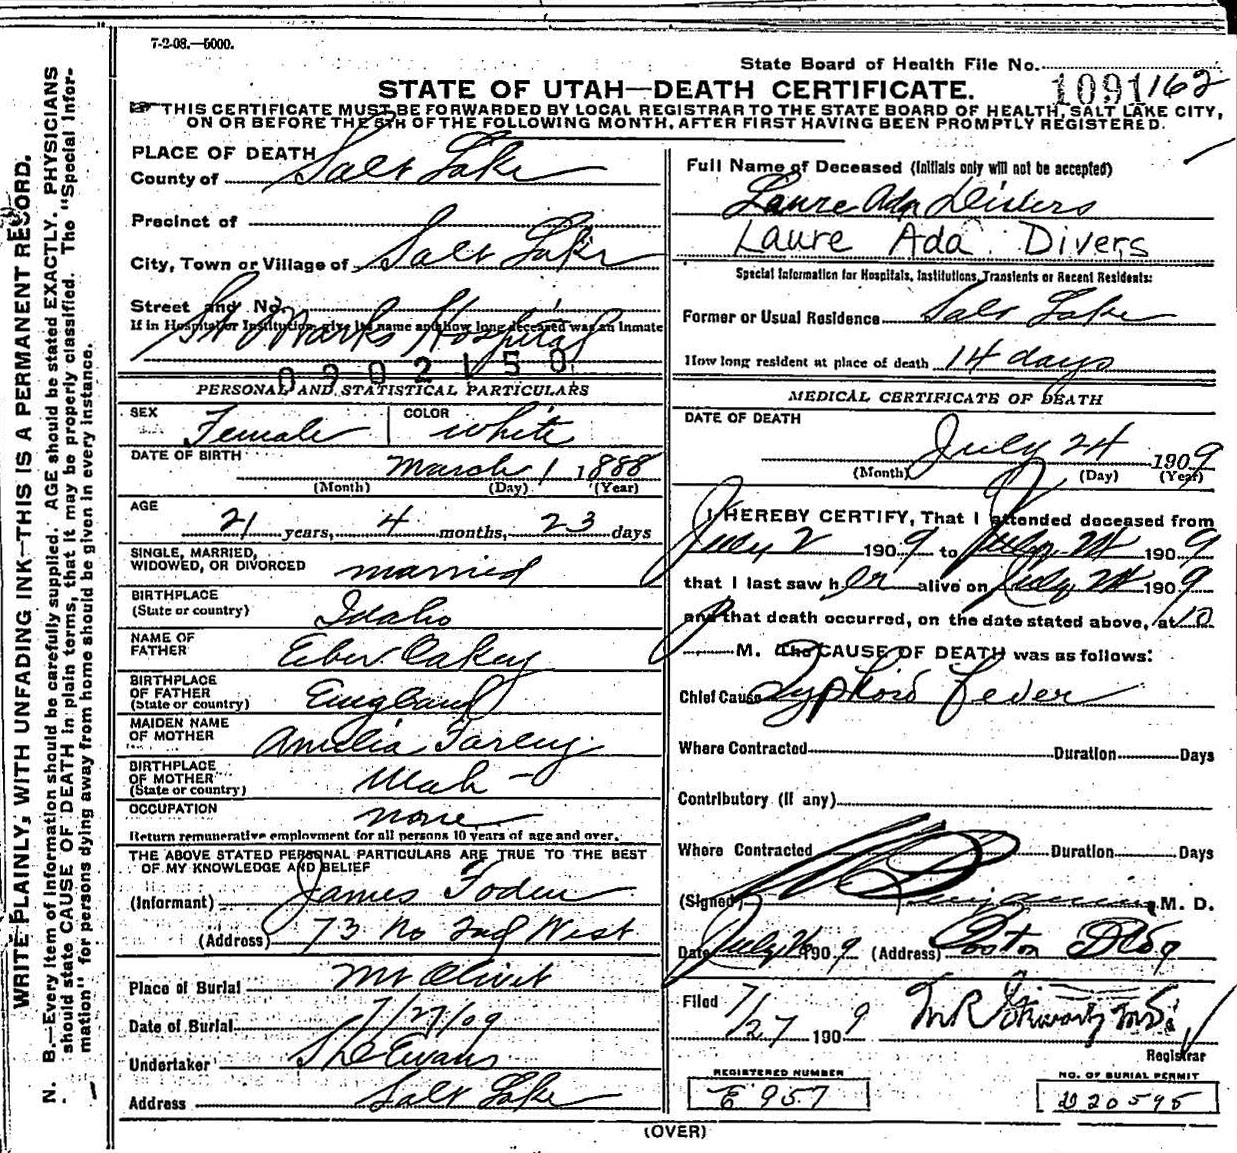 7-2-08.—5000.
State Board of Health File No. 1091 162
STATE OF UTAH—DEATH CERTIFICATE.
THIS CERTIFICATE MUST BE FORWARDED BY LOCAL REGISTRAR TO THE STATE BOARD OF HEALTH, SALT LAKE CITY,
ON OR BEFORE THE 5TH OF THE FOLLOWING MONTH, AFTER FIRST HAVING BEEN PROMPTLY REGISTERED.
WRITE PLAINLY, WITH UNFADING INK—THIS IS A PERMANENT RECORD.
N. B.—Every item of information should be carefully supplied. AGE should be stated EXACTLY. PHYSICIANS
should state CAUSE OF DEATH in plain terms, that it may be properly classified. The "Special Infor-
mation" for persons dying away from home should be given in every instance.
PLACE OF DEATH
County of Salt Lake
Precinct of
City, Town or Village of Salt Lake
Street and No.
If in Hospital or Institution, give its name and how long deceased was an inmate
St Marks Hospital
0902150
PERSONAL AND STATISTICAL PARTICULARS
SEX Female COLOR white
DATE OF BIRTH March 1 1888
(Month) (Day) (Year)
AGE 21 years, 4 months, 23 days
SINGLE, MARRIED,
WIDOWED, OR DIVORCED married
BIRTHPLACE
(State or country) Idaho
NAME OF
FATHER Eber Oakey
BIRTHPLACE
OF FATHER
(State or country) England
MAIDEN NAME
OF MOTHER Amelia
BIRTHPLACE
OF MOTHER
(State or country) Utah
OCCUPATION none
Return remunerative employment for all persons 10 years of age and over.
THE ABOVE STATED PERSONAL PARTICULARS ARE TRUE TO THE BEST
OF MY KNOWLEDGE AND BELIEF
(Informant) James Foden
(Address) 73 No 2nd West
Place of Burial Mt Olivet
Date of Burial 7/27/09
Undertaker Evans
Address Salt Lake
Full Name of Deceased (Initials only will not be accepted)
Laure Ada Divers
Laure Ada Divers
Special Information for Hospitals, Institutions, Transients or Recent Residents:
Former or Usual Residence Salt Lake
How long resident at place of death 14 days
MEDICAL CERTIFICATE OF DEATH
DATE OF DEATH
July 24 1909
(Month) (Day) (Year)
I HEREBY CERTIFY, That I attended deceased from
July 2 1909 to July 24 1909
that I last saw her alive on July 24 1909
and that death occurred, on the date stated above, at 10
P M. The CAUSE OF DEATH was as follows:
Chief Cause Typhoid Fever
Where Contracted Duration Days
Contributory (if any)
Where Contracted Duration Days
(Signed) M. D.
Date July 26 1909 (Address) Boston Bldg
Filed 7/27 1909
Registrar
REGISTERED NUMBER
E 957
NO. OF BURIAL PERMIT
D 20595
(OVER)